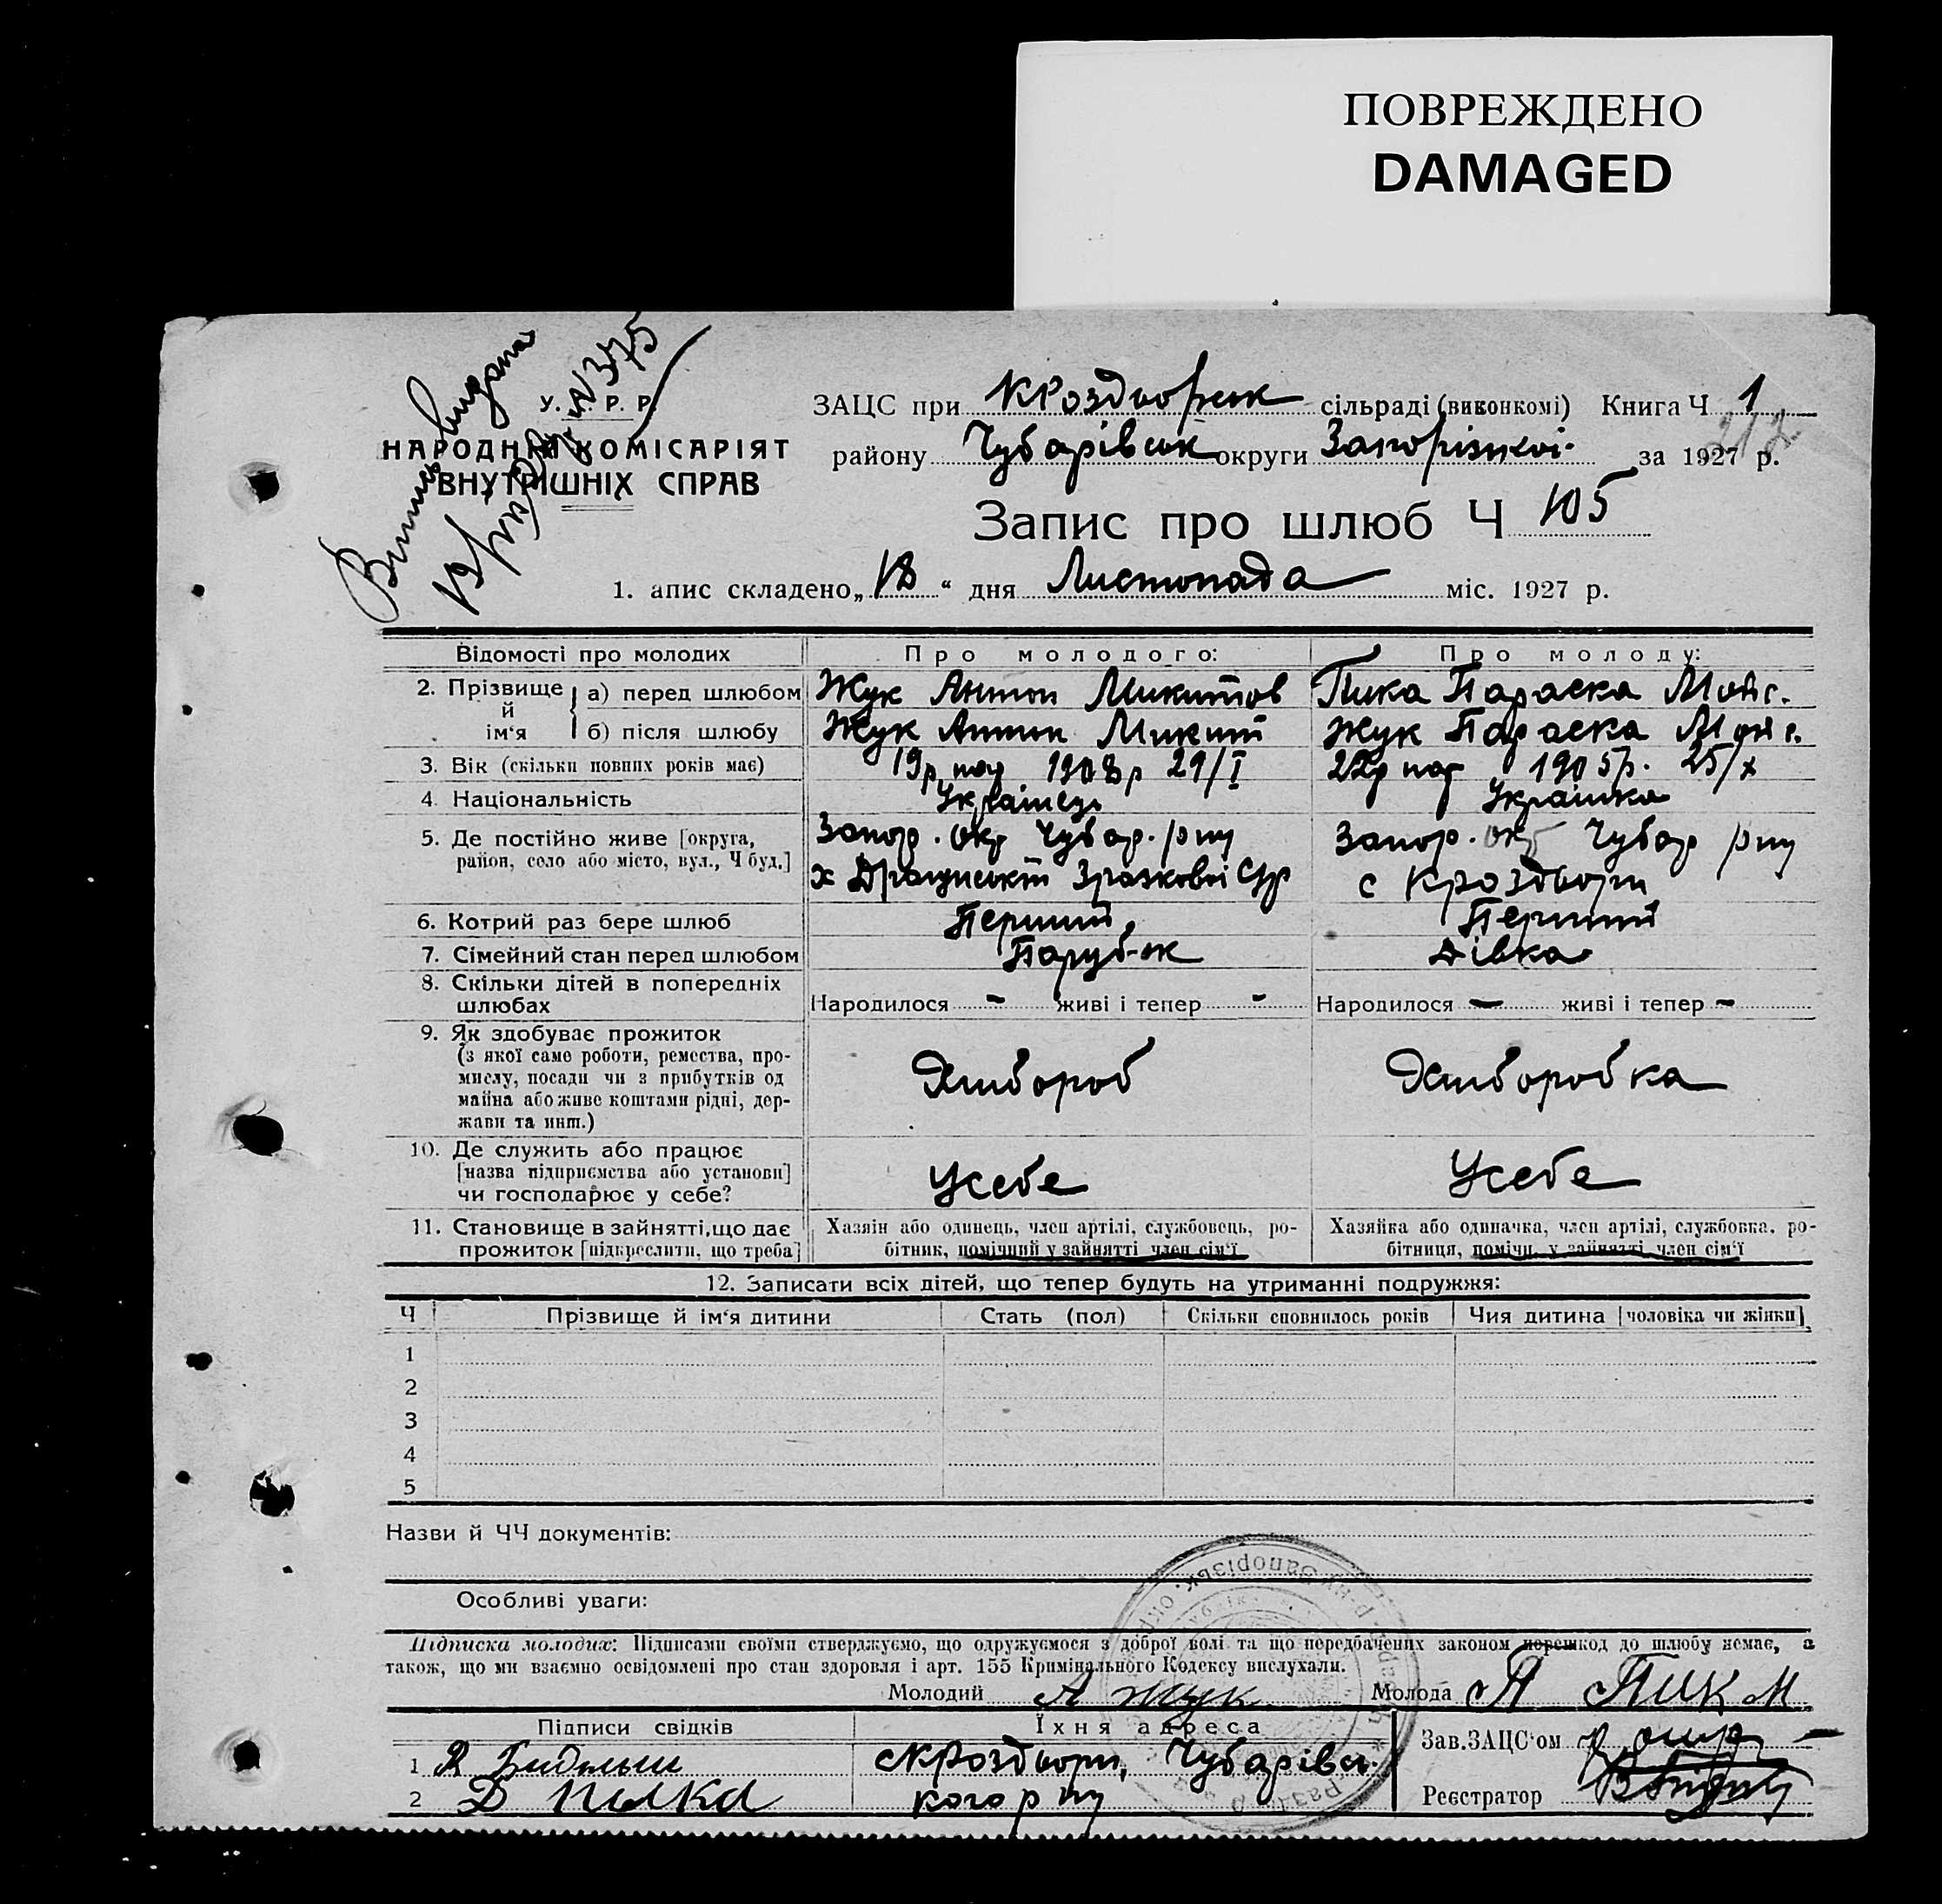 ПОВРЕЖДЕНО
DAMAGED
Виписъ видана
№ 375
У. Р. Р.
НАРОДНИЙ КОМІСАРІЯТ
ВНУТРІШНІХ СПРАВ
ЗАЦС при КРоздорськ сільраді (виконкомі) Книга Ч 1
району Чубарівськ округи Запорізької за 1927 р.
212
Запис про шлюб Ч 105
1. апис складено „18“ дня Листопада міс. 1927 р.
Відомості про молодих Про молодого: Про молоду:
2. Прізвище й ім‘я а) перед шлюбом Жук Антон Микитов Пика Параска Мойс.
б) після шлюбу Жук Антон Микит Жук Параска Мойс.
3. Вік (скільки повних років має) 19р. нар 1908р 29/I 22р нар 1905р. 25/X
4. Національність Українець Українка
5. Де постійно живе [округа, Запор. окр Чубар. рну Запор. окр Чубар рну
район, село або місто, вул., Ч буд.] х Зразкової С/р с КРоздори
6. Котрий раз бере шлюб Перший Перший
7. Сімейний стан перед шлюбом Паруб-ок Дівка
8. Скільки дітей в попередніх
шлюбах Народилося - живі і тепер - Народилося - живі і тепер -
9. Як здобуває прожиток
(з якої саме роботи, ремества, про-
мислу, посади чи з прибутків од Хлібороб Хліборобка
майна або живе коштами рідні, дер-
жави та инш.)
10. Де служить або працює
[назва підприємства або установи] Усебе Усебе
чи господарює у себе?
11. Становище в зайнятті, що дає Хазяін або одинець, член артілі, службовець, ро- Хазяйка або одиначка, член артілі, службовка, ро-
прожиток [підкреслити, що треба] бітник, помічний у зайнятті член сім‘ї бітниця, помічн. у зайнятті член сім‘ї
12. Записати всіх дітей, що тепер будуть на утриманні подружжя:
Ч Прізвище й ім‘я дитини Стать (пол) Скільки сповнилось років Чия дитина [чоловіка чи жінки]
1
2
3
4
5
Назви й ЧЧ документів:
Особливі уваги:
Підписка молодих: Підписами своїми стверджуємо, що одружуємося з доброї волі та що передбачених законом перешкод до шлюбу немає, а
також, що ми взаємно освідомлені про стан здоровля і арт. 155 Кримінального Кодексу вислухали.
Молодий А Жук Молода П ПИК М
Підписи свідків Їхня адреса Зав. ЗАЦС‘ом
1 с КРоздори, Чубарівсь-
2 Д кого рну Реєстратор